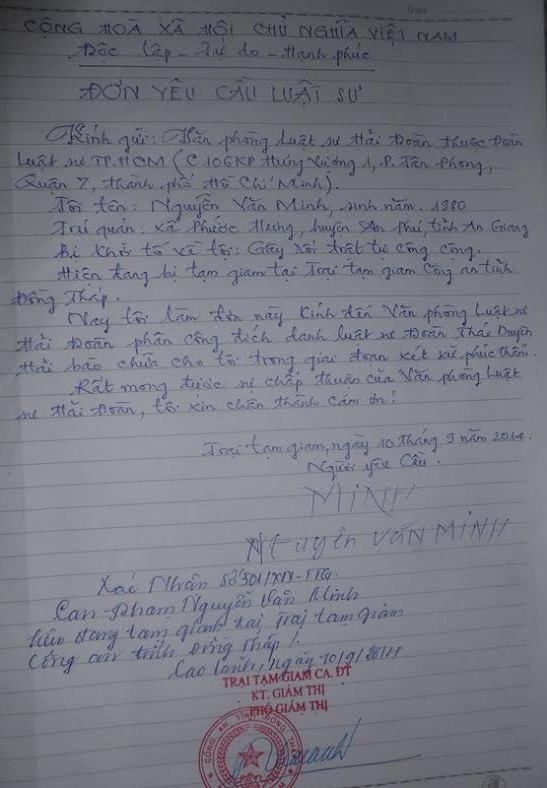 CỘNG HOÀ XÃ HỘI CHỦ NGHĨA VIỆT NAM
Độc lập - Tự do - Hạnh phúc
ĐƠN YÊU CẦU LUẬT SƯ
Kính gửi: Văn phòng Luật sư Hải Đoàn thuộc Đoàn
Luật sư TP.HCM (C106KP Hưng Vượng 1, P. Tân Phong,
Quận 7, thành phố Hồ Chí Minh).
Tôi tên: Nguyễn Văn Minh, sinh năm: 1980
Trú quán: xã Phước Hưng, huyện An Phú, tỉnh An Giang
Bị khởi tố về tội: Gây rối trật tự công cộng.
Hiện đang bị tạm giam tại Trại tạm giam Công an tỉnh
Đồng Tháp.
Nay tôi làm đơn này kính đến Văn phòng Luật sư
Hải Đoàn phân công đích danh luật sư Đoàn Thái Duyên
Hải bào chữa cho tôi trong giai đoạn xét xử phúc thẩm.
Rất mong được sự chấp thuận của Văn phòng Luật
sư Hải Đoàn, tôi xin chân thành cám ơn!
Trại tạm giam, ngày 10 tháng 9 năm 2014.
Người yêu cầu.
MINH
Nguyễn VĂN MINH
Xác Nhận Số 301/XN-TTG.
Can phạm Nguyễn Văn Minh
hiện đang tạm giam tại Trại tạm giam
Công an tỉnh Đồng Tháp /.
Cao Lãnh, ngày 10/9/2014
TRẠI TẠM GIAM CA. ĐT
KT. GIÁM THỊ
PHÓ GIÁM THỊ
CÔNG AN TỈNH ĐỒNG